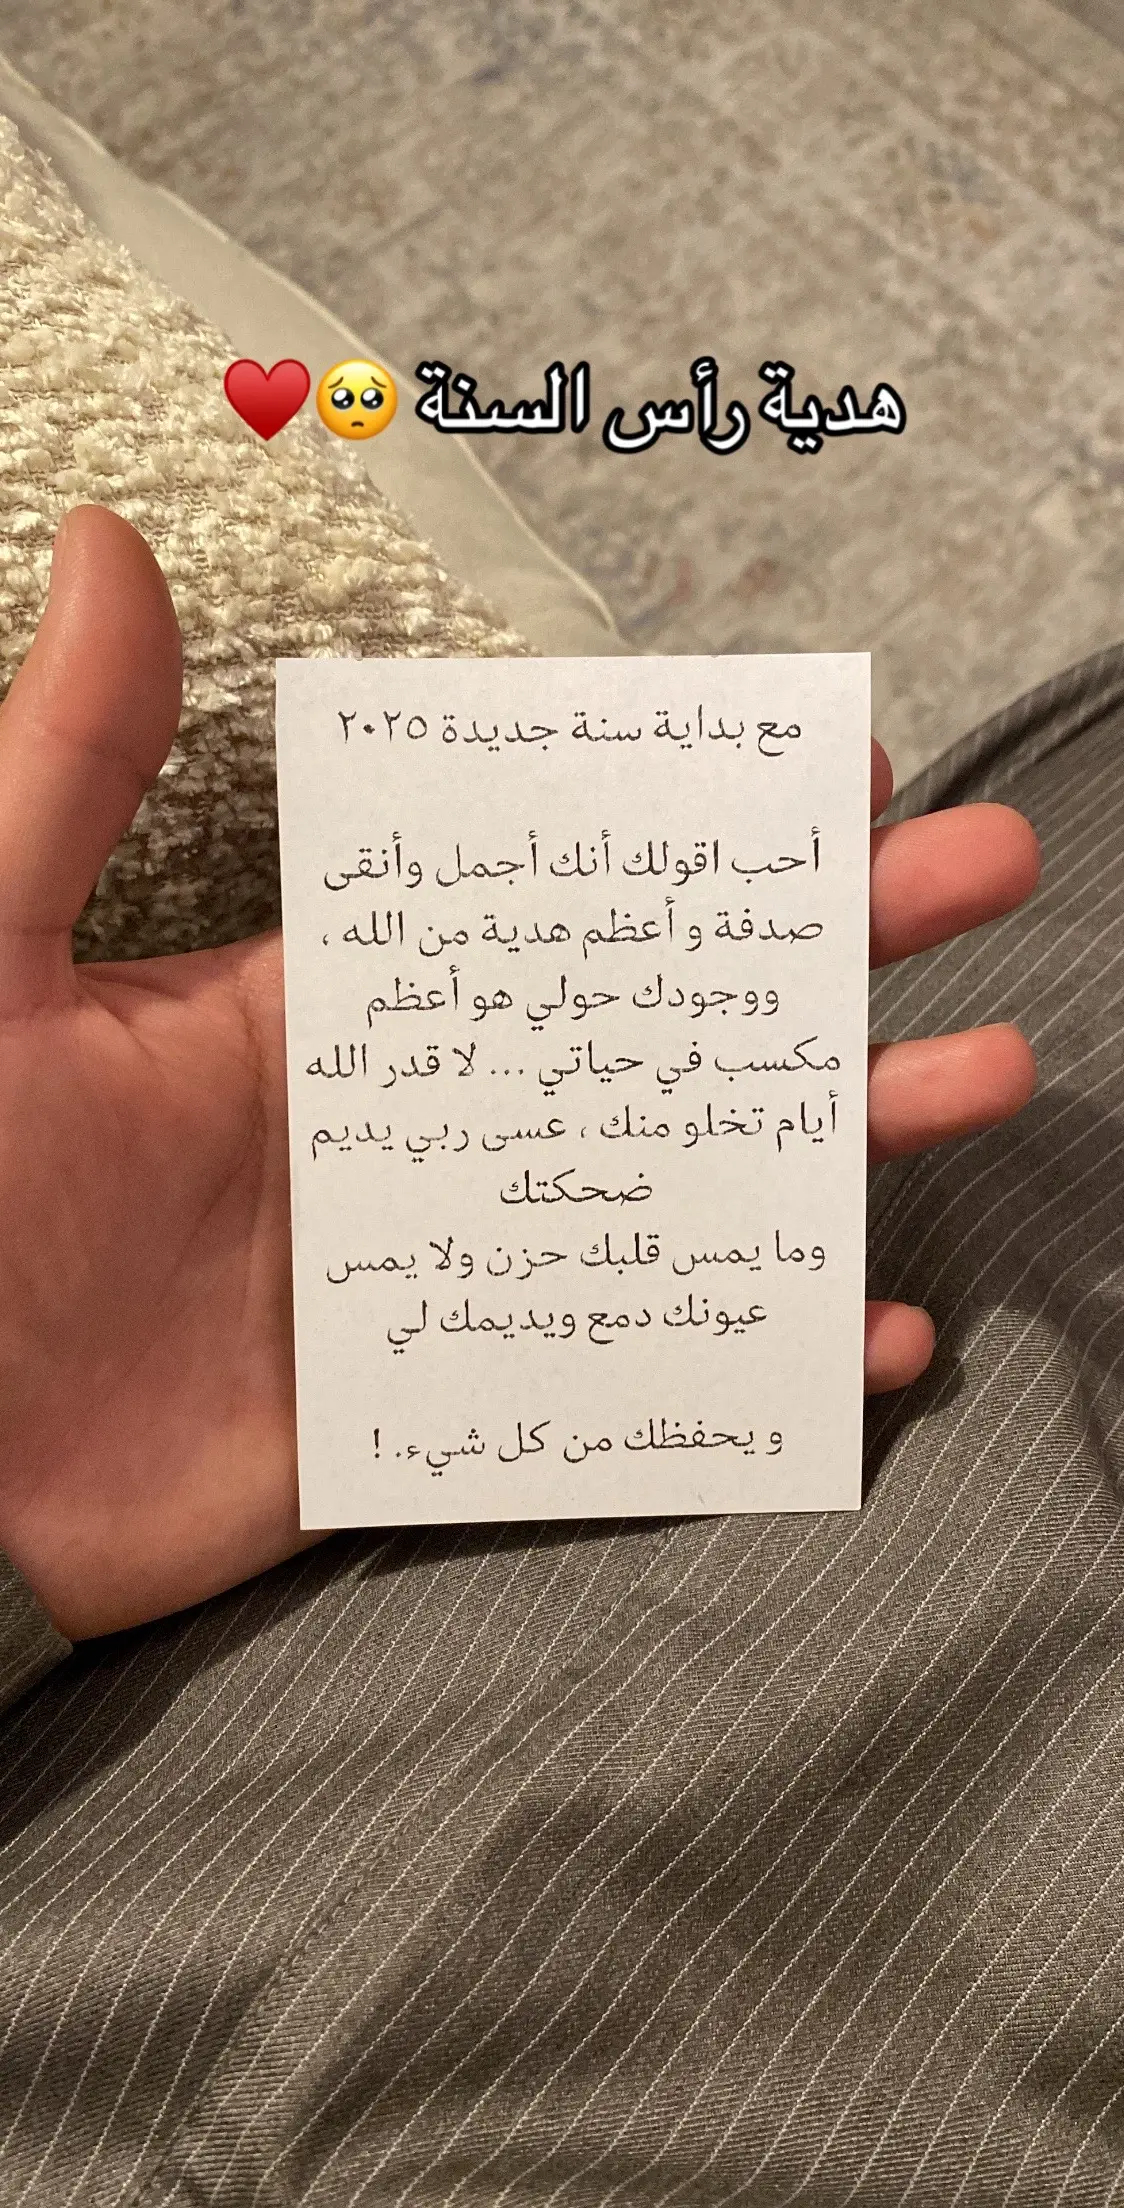 هدية رأس السنة 🥺♥️
مع بداية سنة جديدة ٢٠٢٥
أحب اقولك أنك أجمل وأنقى
صدفة و أعظم هدية من الله ،
ووجودك حولي هو أعظم
مكسب في حياتي ... لا قدر الله
أيام تخلو منك ، عسى ربي يديم
ضحكتك
وما يمس قلبك حزن ولا يمس
عيونك دمع ويديمك لي
و يحفظك من كل شيء. !